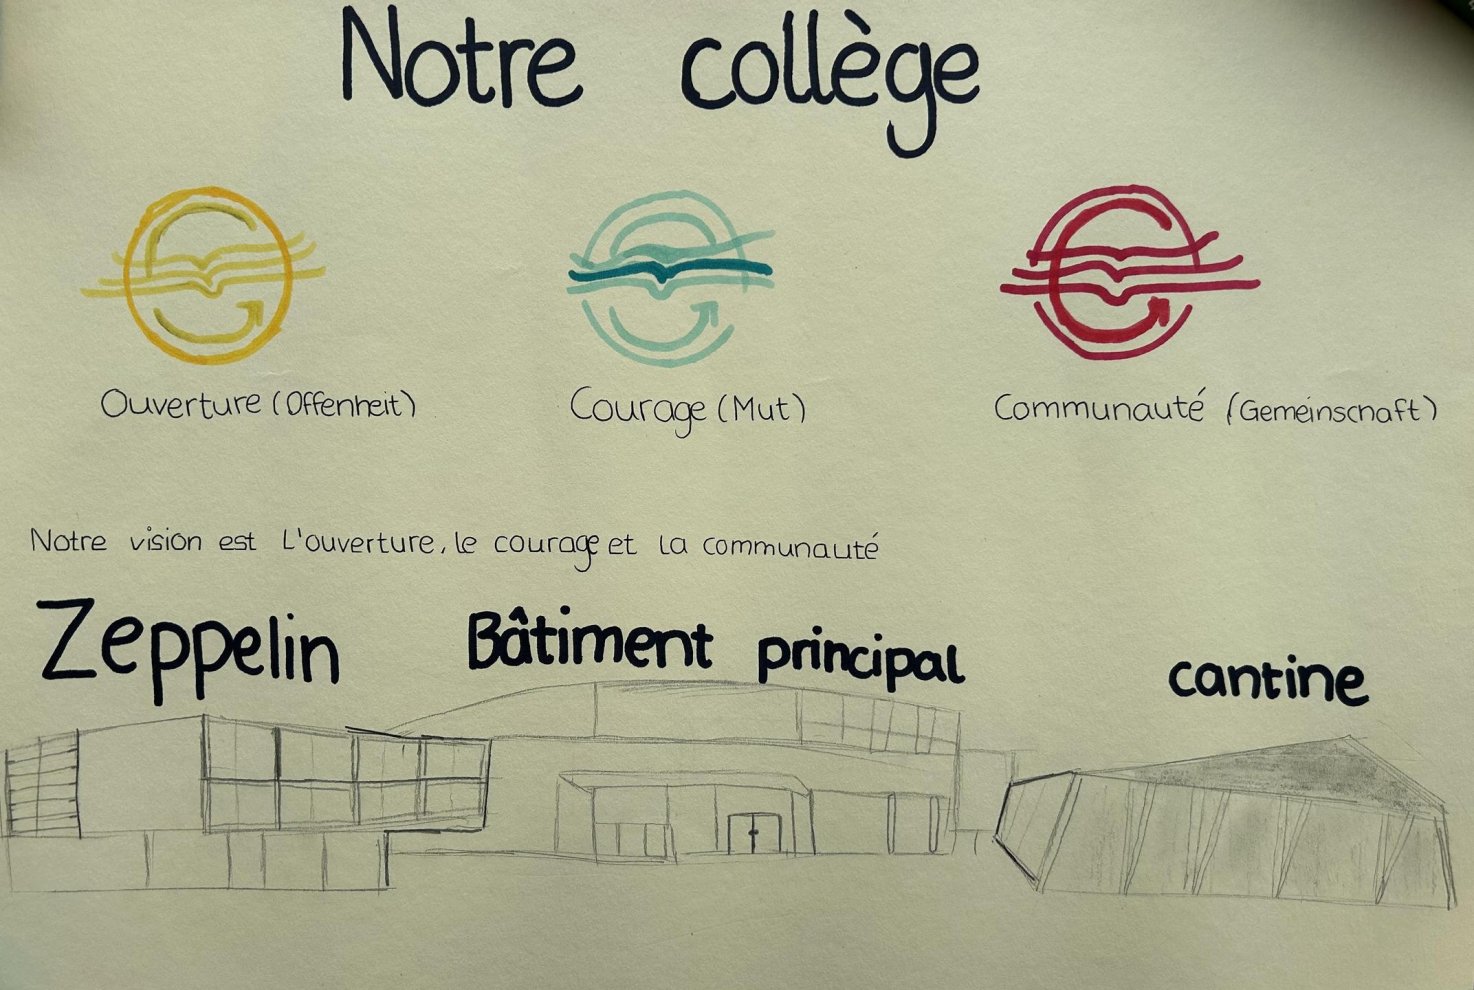 Notre collège
Ouverture (Offenheit)
Courage (Mut)
Communauté (Gemeinschaft)
Notre vision est L'ouverture, le courage et la communauté
Zeppelin
Bâtiment principal
cantine